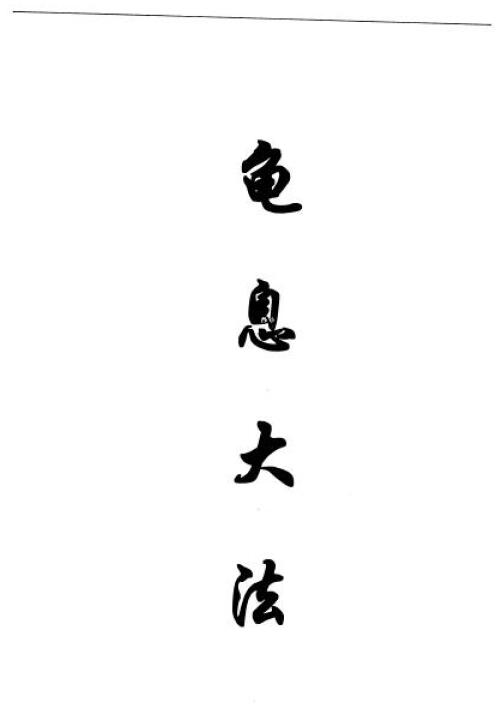 龟息大法